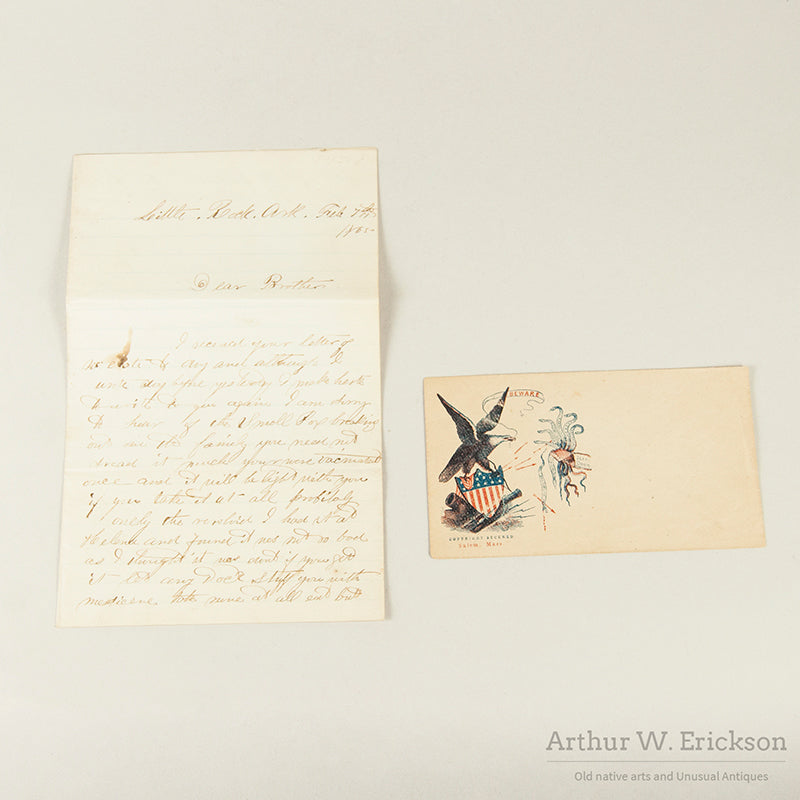 Little Rock Ark. Feb 7th
1865
Dear Brother
I received your letter of
to day and although I
wrote day before yesterday I make haste
to write to you again I am sorry
to hear of the Small Pox breaking
out in the family you need not
dread it much you were vaccinated
once and it will be light with you
if you take it at all probibly
only the I had it at
Helena and found it was not so bad
as I thought it was dont if you get
it let any Doct stuff you with
medicene take none at all eat but
BEWARE
COPYRIGHT SECURED
Salem, Mass
Arthur W. Erickson
Old native arts and Unusual Antiques